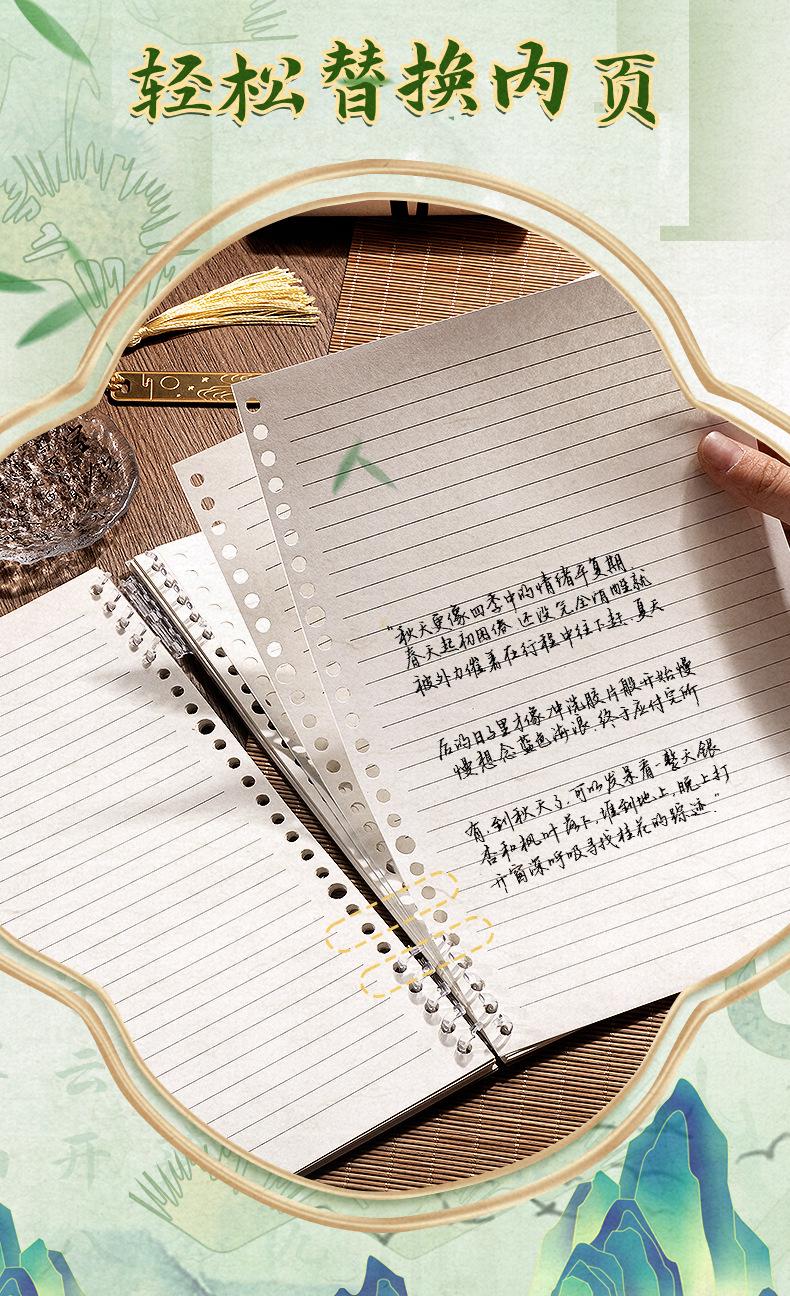 轻松替换内页
“秋天更像四季中的情绪平复期.
春天起初困倦 还没完全清醒就
被外力催着在行程中往下赶. 夏天
后的日子里才像冲洗胶片般开始慢
慢想念蓝色海浪. 终于应付完所
有. 到秋天了, 可以发呆看 整天银
杏和枫叶落下, 堆到地上. 晚上打
开窗深呼吸寻找桂花的踪迹.”
云
开